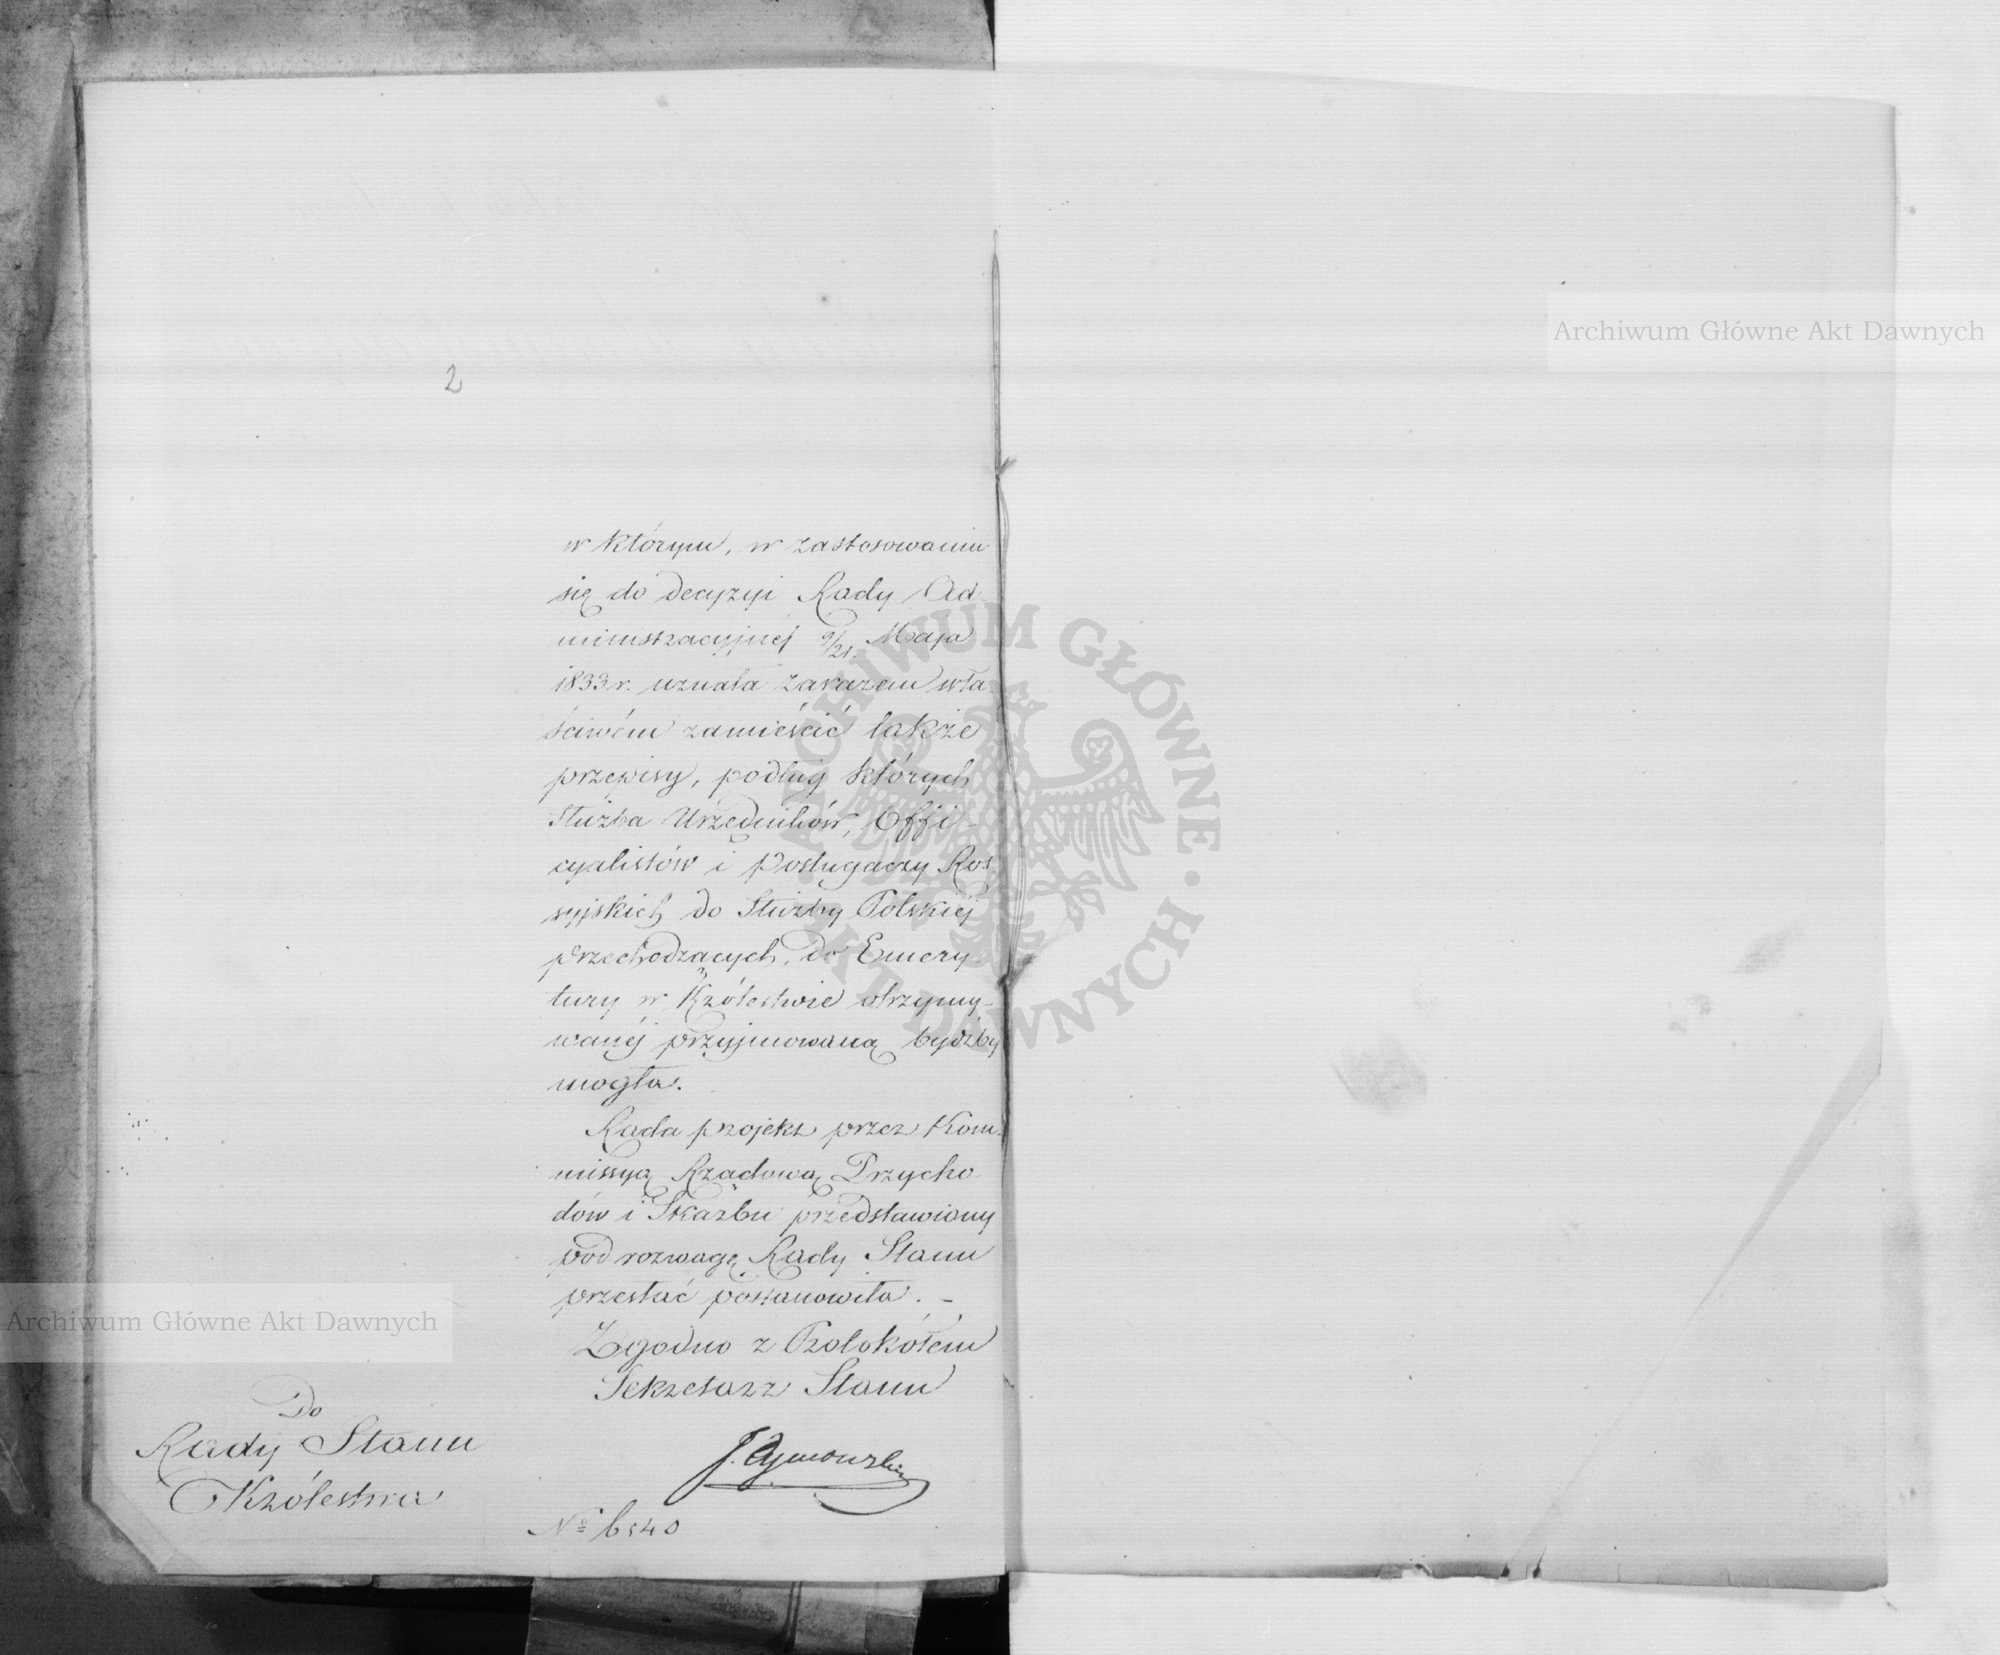 2
w którym, w zastosowaniu
się do decyzyi Rady Ad
ministracyjnej 9/21. Maja
1833 r. uznała zarazem wła-
ściwém zamieścić także
przepisy, podług których
Służba Urzędników, Offi-
cyalistów i Posługaczy Ros
syjskich do Służby Polskiéj
przechodzących, do Emery-
tury w Królestwie otrzymy-
wanéj przyjmowaną bydźby
mogła.
Rada projekt przez Kom-
missyą Rządową Przycho
dów i Skarbu przedstawiony
pod rozwagę Rady Stanu
przesłać postanowiła. -
Zgodno z Protokółem
Sekretarz Stanu
J. Tymowski
Do
Rady Stanu
Królestwa
No 6540
Archiwum Główne Akt Dawnych
Archiwum Główne Akt Dawnych
ARCHIWUM GŁÓWNE · AKT DAWNYCH ·